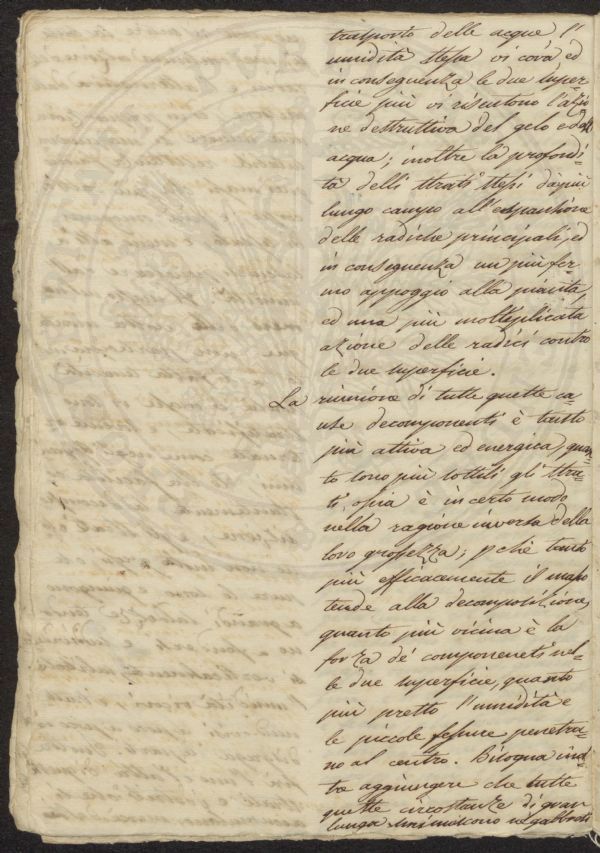 trasporto delle acque l'
umidità stessa vi cova ed
in conseguenza le due super-
ficie più vi risentono l'azio
ne destruttiva del gelo e dell'
acqua; inoltre la profondi-
tà delli strati stessi dà più
lungo campo all'espansione
delle radiche principali, ed
in conseguenza un più fer-
mo appoggio alla pianta,
ed una più moltiplicata
azione delle radici contro
le due superficie.
La riunione di tutte queste ca-
use decomponenti è tanto
più attiva ed energica, quan-
to sono più sottili gli stra-
ti, ossia è in certo modo
nella ragione inversa della
loro grossezza; pchè tanto
più efficacemente il masso
tende alla decomposizione,
quanto più vicina è la
forza de' componeneti nel-
le due superficie, quanto
più presto l'umidità e
le piccole fessure penetra-
no al centro. Bisogna inol-
tre aggiungere che tutte
queste circostanze di gran
lunga